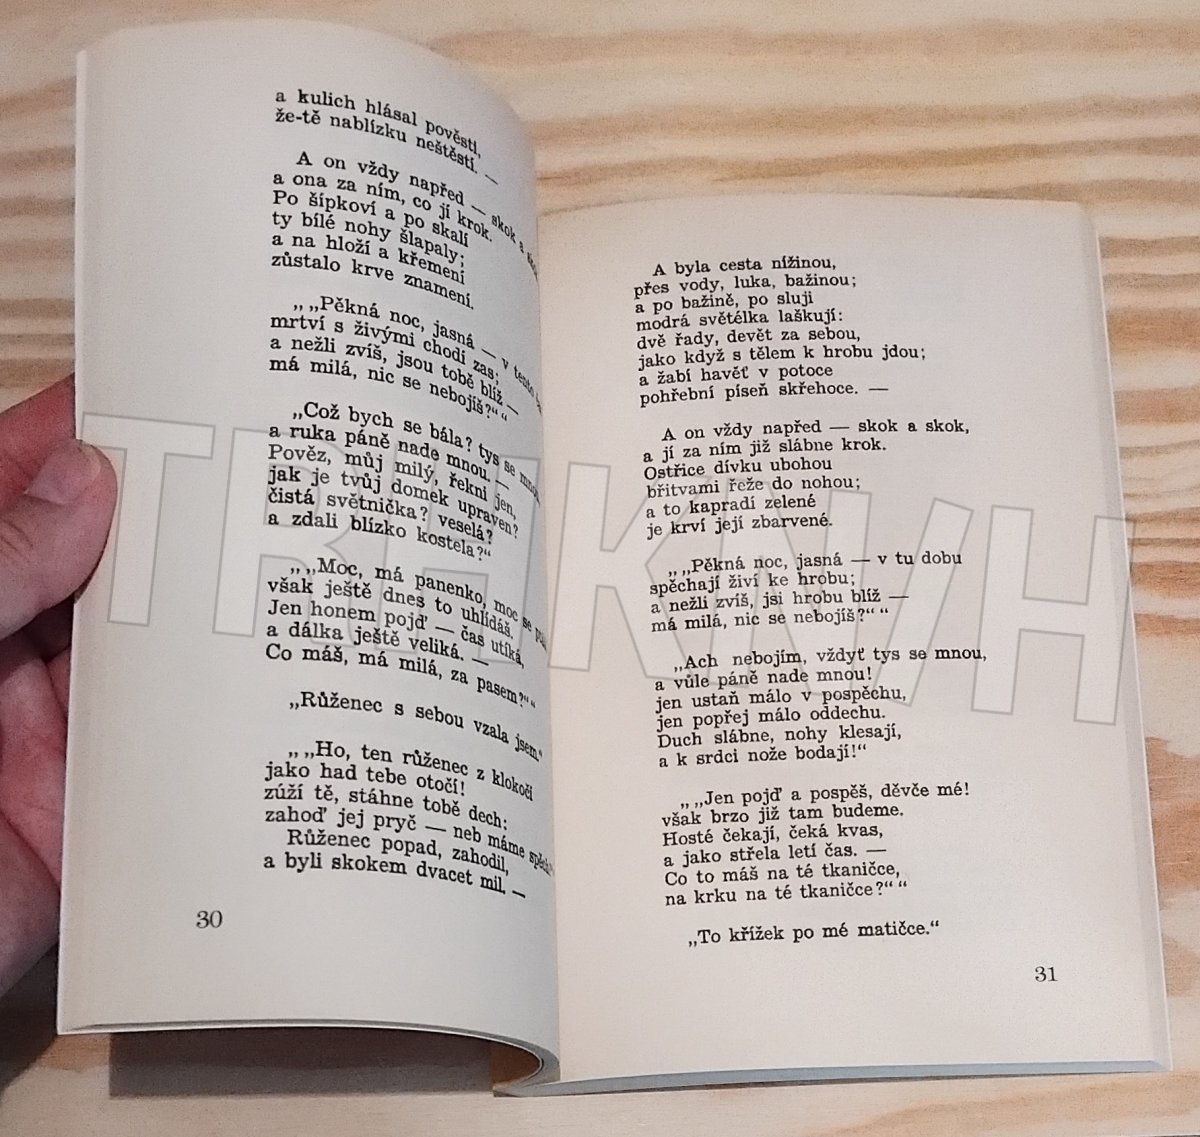 a kulich hlásal pověsti,
že-tě nablízku neštěstí. —
A on vždy napřed — skok a skok,
a ona za ním, co jí krok.
Po šípkoví a po skalí
ty bílé nohy šlapaly;
a na hloží a křemení
zůstalo krve znamení.
„ „Pěkná noc, jasná — v tento
mrtví s živými chodí zas;
a nežli zvíš, jsou tobě blíž —
má milá, nic se nebojíš?“ “
„Což bych se bála? tys se mnou,
a ruka páně nade mnou. —
Pověz, můj milý, řekni jen,
jak je tvůj domek upraven?
čistá světnička? veselá?
a zdali blízko kostela?“
„ „Moc, má panenko, moc se
však ještě dnes to uhlídáš.
Jen honem pojď — čas utíká,
a dálka ještě veliká. —
Co máš, má milá, za pasem?“ “
„Růženec s sebou vzala jsem.“
„ „Ho, ten růženec z klokočí
jako had tebe otočí!
zúží tě, stáhne tobě dech:
zahoď jej pryč — neb máme spěch!“ “
Růženec popad, zahodil,
a byli skokem dvacet mil. —
30
A byla cesta nížinou,
přes vody, luka, bažinou;
a po bažině, po sluji
modrá světélka laškují:
dvě řady, devět za sebou,
jako když s tělem k hrobu jdou;
a žabí havěť v potoce
pohřební píseň skřehoce. —
A on vždy napřed — skok a skok,
a jí za ním již slábne krok.
Ostřice dívku ubohou
břitvami řeže do nohou;
a to kapradí zelené
je krví její zbarvené.
„ „Pěkná noc, jasná — v tu dobu
spěchají živí ke hrobu;
a nežli zvíš, jsi hrobu blíž —
má milá, nic se nebojíš?“ “
„Ach nebojím, vždyť tys se mnou,
a vůle páně nade mnou!
jen ustaň málo v pospěchu,
jen popřej málo oddechu.
Duch slábne, nohy klesají,
a k srdci nože bodají!“
„ „Jen pojď a pospěš, děvče mé!
však brzo již tam budeme.
Hosté čekají, čeká kvas,
a jako střela letí čas. —
Co to máš na té tkaničce,
na krku na té tkaničce?“ “
„To křížek po mé matičce.“
31
TRHKNIH